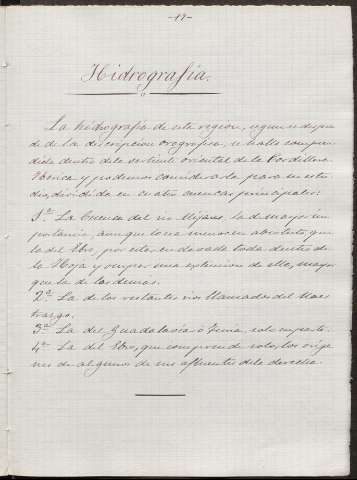 -17-
Hidrografía.
La hidrografía de esta region, segun se despren
de de la descripcion orografica, se halla compren
dida dentro de la vertiente oriental de la Cordillera
Iberica y podemos considerarla para su estu
dio, dividida en cuatro cuencas principales:
1ª La Cuenca del rio Mijares, la de mayor im
portancia, aunque lo sea menos en absoluto, que
la del Ebro, por estar enclavada toda dentro de
la Hoja y ocupar una extension de ella, mayor
que la de las demas.
2ª La de los restantes rios llamados del Maes
trazgo.
3ª La del Guadalaviar ó Turia, solo en parte.
4ª La del Ebro, que comprende solo, los orige
nes de algunos de sus afluentes de la derecha.